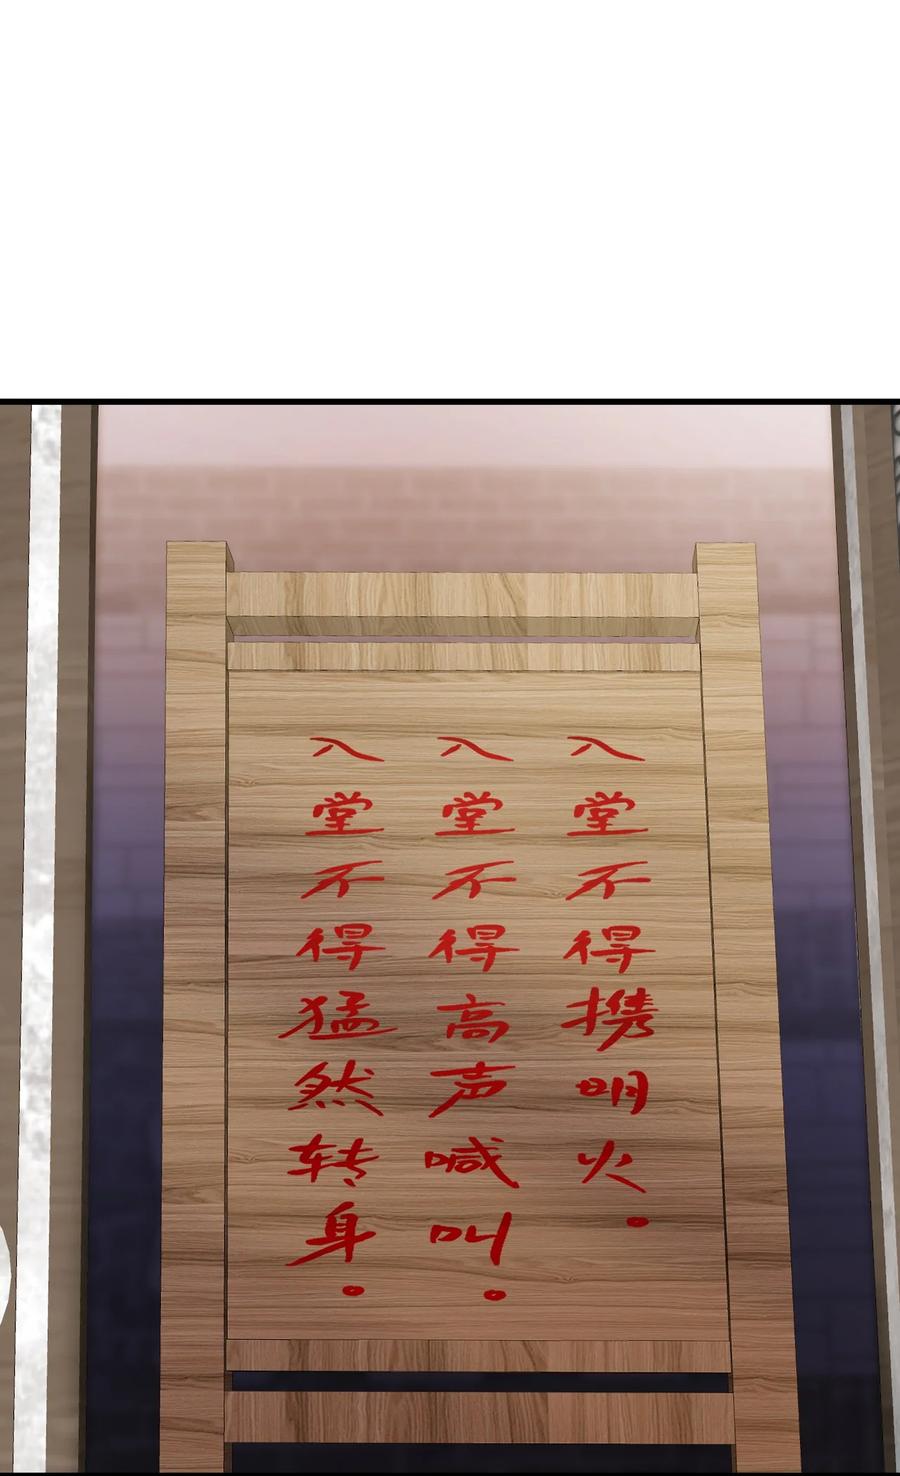 入堂不得携明火。
入堂不得高声喊叫。
入堂不得猛然转身。